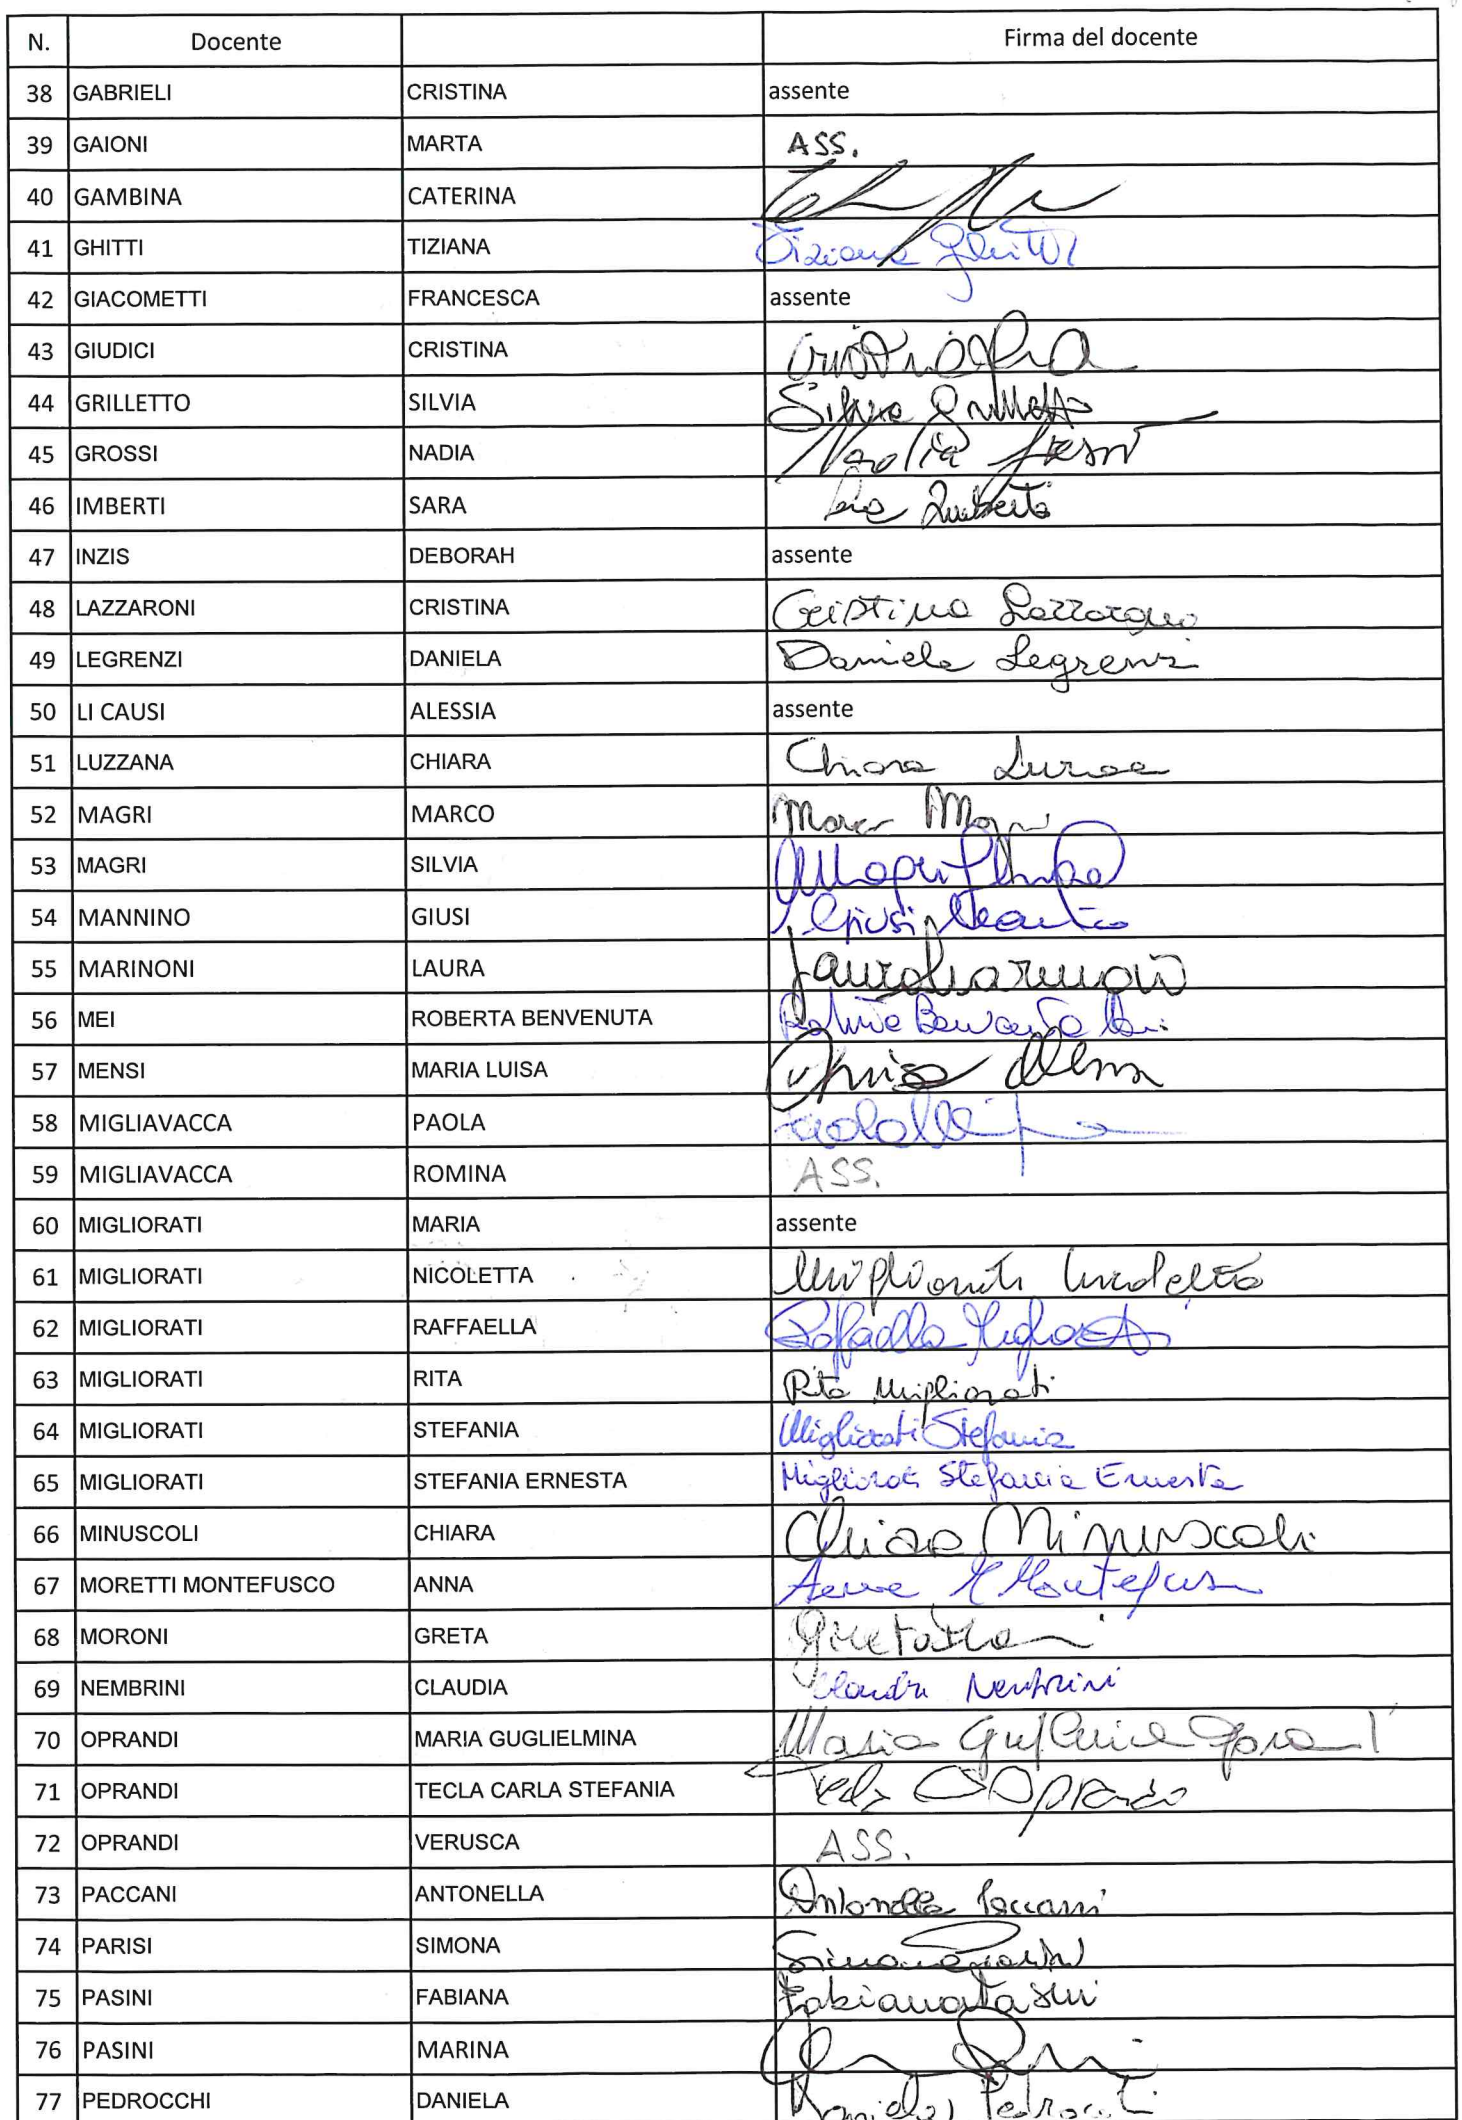 N. Docente Firma del docente
38 GABRIELI CRISTINA assente
39 GAIONI MARTA ASS.
40 GAMBINA CATERINA
41 GHITTI TIZIANA Tiziana Ghitti
42 GIACOMETTI FRANCESCA assente
43 GIUDICI CRISTINA Cristina
44 GRILLETTO SILVIA Silvia Grilletto
45 GROSSI NADIA Nadia Grossi
46 IMBERTI SARA Sara Imberti
47 INZIS DEBORAH assente
48 LAZZARONI CRISTINA Cristina Lazzaroni
49 LEGRENZI DANIELA Daniela Legrenzi
50 LI CAUSI ALESSIA assente
51 LUZZANA CHIARA Chiara Luzzana
52 MAGRI MARCO Marco Magri
53 MAGRI SILVIA Magri Silvia
54 MANNINO GIUSI Giusi Mannino
55 MARINONI LAURA Laura Marinoni
56 MEI ROBERTA BENVENUTA Roberta Benvenuta Mei
57 MENSI MARIA LUISA Luisa Mensi
58 MIGLIAVACCA PAOLA
59 MIGLIAVACCA ROMINA ASS.
60 MIGLIORATI MARIA assente
61 MIGLIORATI NICOLETTA Migliorati Nicoletta
62 MIGLIORATI RAFFAELLA Raffaella Migliorati
63 MIGLIORATI RITA Rita Migliorati
64 MIGLIORATI STEFANIA Migliorati Stefania
65 MIGLIORATI STEFANIA ERNESTA Migliorati Stefania Ernesta
66 MINUSCOLI CHIARA Chiara Minuscoli
67 MORETTI MONTEFUSCO ANNA Anna M Montefusco
68 MORONI GRETA Greta Moroni
69 NEMBRINI CLAUDIA Claudia Nembrini
70 OPRANDI MARIA GUGLIELMINA Maria Guglielmina Oprandi
71 OPRANDI TECLA CARLA STEFANIA Tecla Oprandi
72 OPRANDI VERUSCA ASS.
73 PACCANI ANTONELLA Antonella Paccani
74 PARISI SIMONA Simona Parisi
75 PASINI FABIANA Fabiana Pasini
76 PASINI MARINA
77 PEDROCCHI DANIELA Daniela Pedrocchi